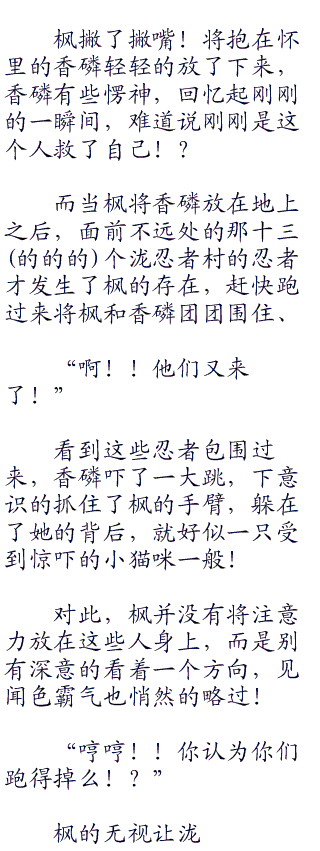 枫撇了撇嘴！将抱在怀
里的香磷轻轻的放了下来，
香磷有些愣神，回忆起刚刚
的一瞬间，难道说刚刚是这
个人救了自己！？
而当枫将香磷放在地上
之后，面前不远处的那十三
(的的的)个泷忍者村的忍者
才发生了枫的存在，赶快跑
过来将枫和香磷团团围住、
“啊！！他们又来
了！”
看到这些忍者包围过
来，香磷吓了一大跳，下意
识的抓住了枫的手臂，躲在
了她的背后，就好似一只受
到惊吓的小猫咪一般！
对此，枫并没有将注意
力放在这些人身上，而是别
有深意的看着一个方向，见
闻色霸气也悄然的略过！
“哼哼！！你认为你们
跑得掉么！？”
枫的无视让泷